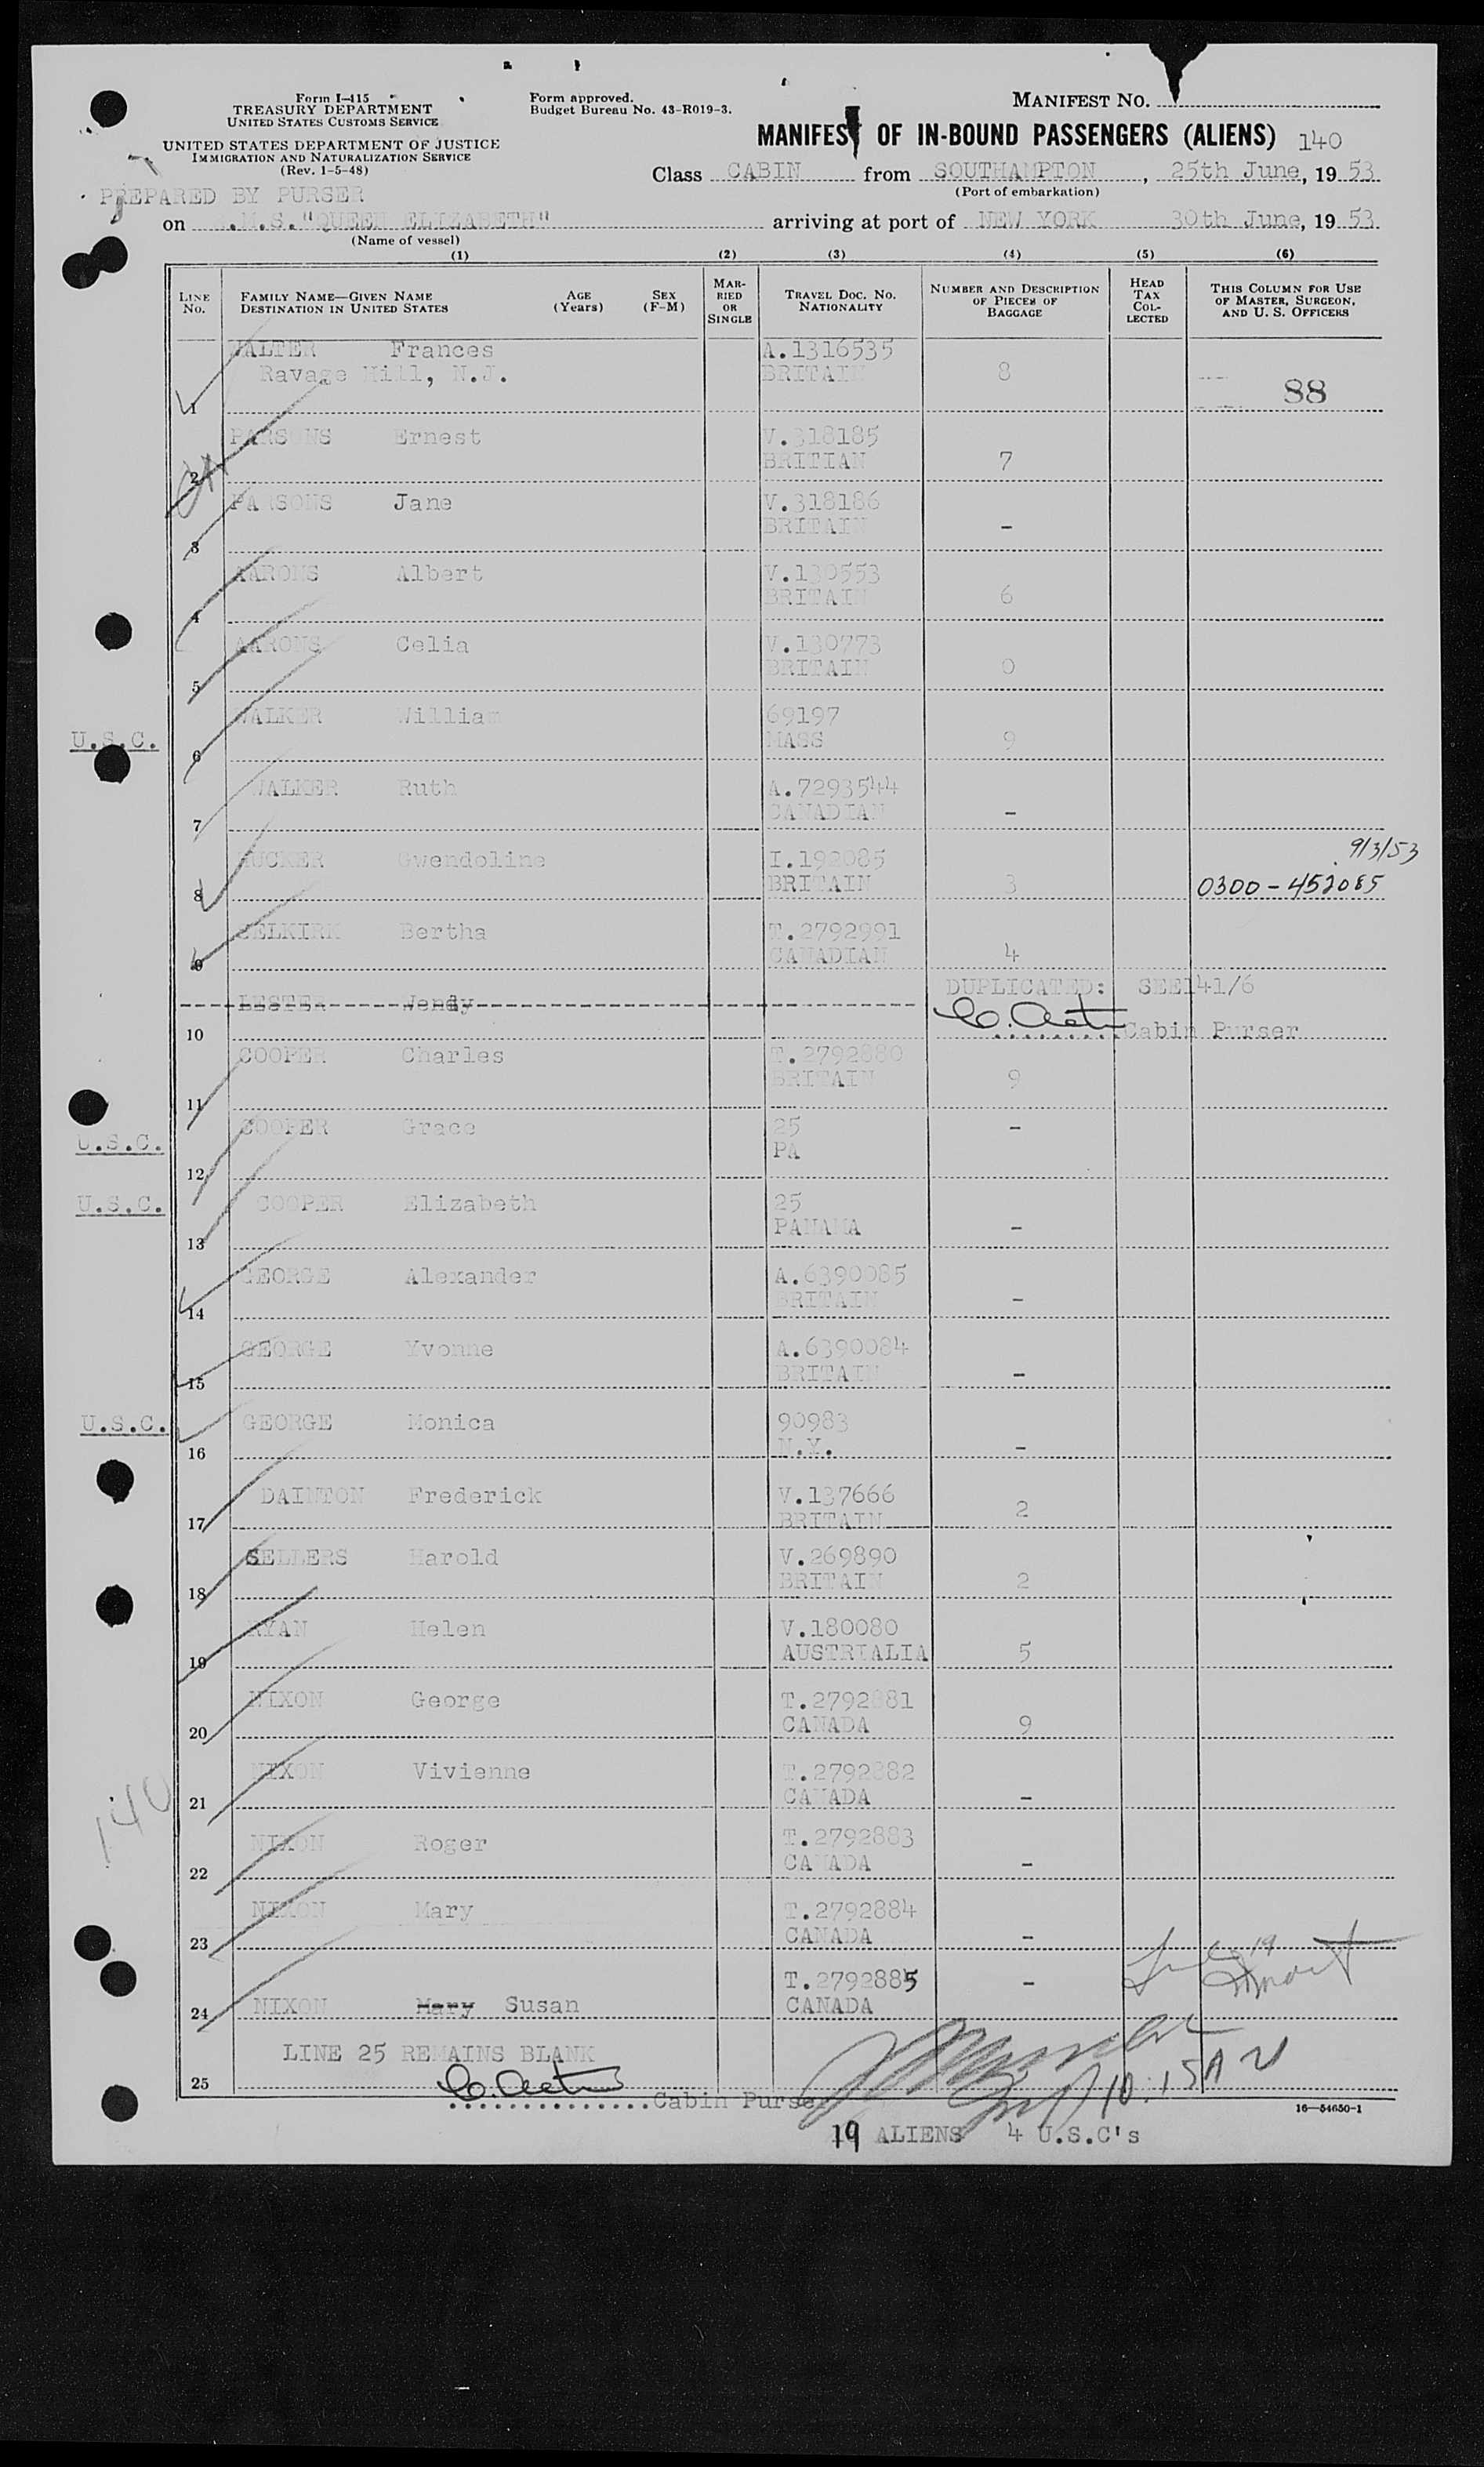 Form I-415
TREASURY DEPARTMENT
UNITED STATES CUSTOMS SERVICE
UNITED STATES DEPARTMENT OF JUSTICE
IMMIGRATION AND NATURALIZATION SERVICE
(Rev. 1-5-48)
PREPARED BY PURSER
Form approved.
Budget Bureau No. 43-R019-3.
MANIFEST NO.
MANIFEST OF IN-BOUND PASSENGERS (ALIENS) 140
Class CABIN from SOUTHAMPTON, 25th June, 1953
(Port of embarkation)
on .M.S. "QUEEN ELIZABETH" arriving at port of NEW YORK 30th June, 1953
(Name of vessel)
(1) (2) (3) (4) (5) (6)
LINE No. FAMILY NAME—GIVEN NAME DESTINATION IN UNITED STATES AGE (Years) SEX (F-M) MARRIED OR SINGLE TRAVEL DOC. NO. NATIONALITY NUMBER AND DESCRIPTION OF PIECES OF BAGGAGE HEAD TAX COLLECTED THIS COLUMN FOR USE OF MASTER, SURGEON, AND U. S. OFFICERS
WALTER Frances A.1316535
Ravage Hill, N.J. BRITAIN 8
1 88
PARSONS Ernest V.318185
BRITIAN 7
2
PARSONS Jane V.318186
BRITAIN -
3
AARONS Albert V.130553
BRITAIN 6
4
AARONS Celia V.130773
BRITAIN 0
5
WALKER William 69197
U.S.C. MASS 9
6
WALKER Ruth A.7293544
CANADIAN -
7
9/3/53
Gwendoline I.192085
BRITAIN 3 0300-452085
8
SELKIRK Bertha T.2792991
CANADIAN 4
9
DUPLICATED: SEE141/6
LESTER Wendy
Cabin Purser
10
COOPER Charles T.2792880
BRITAIN 9
11
COOPER Grace 25 -
U.S.C. PA
12
U.S.C. COOPER Elizabeth 25
PANAMA -
13
GEORGE Alexander A.6390085
BRITAIN -
14
GEORGE Yvonne A.6390084
BRITAIN -
15
U.S.C. GEORGE Monica 90983
N.Y. -
16
DAINTON Frederick V.137666
BRITAIN 2
17
SELLERS Harold V.269890
BRITAIN 2
18
RYAN Helen V.180080
AUSTRIALIA 5
19
NIXON George T.2792881
CANADA 9
20
NIXON Vivienne T.2792882
CANADA -
21
140
NIXON Roger T.2792883
CANADA -
22
NIXON Mary T.2792884
CANADA -
23
T.2792885 -
NIXON Mary Susan CANADA
24
LINE 25 REMAINS BLANK
25
Cabin Purser
10:15A
16—54650-1
19 ALIENS 4 U.S.C's